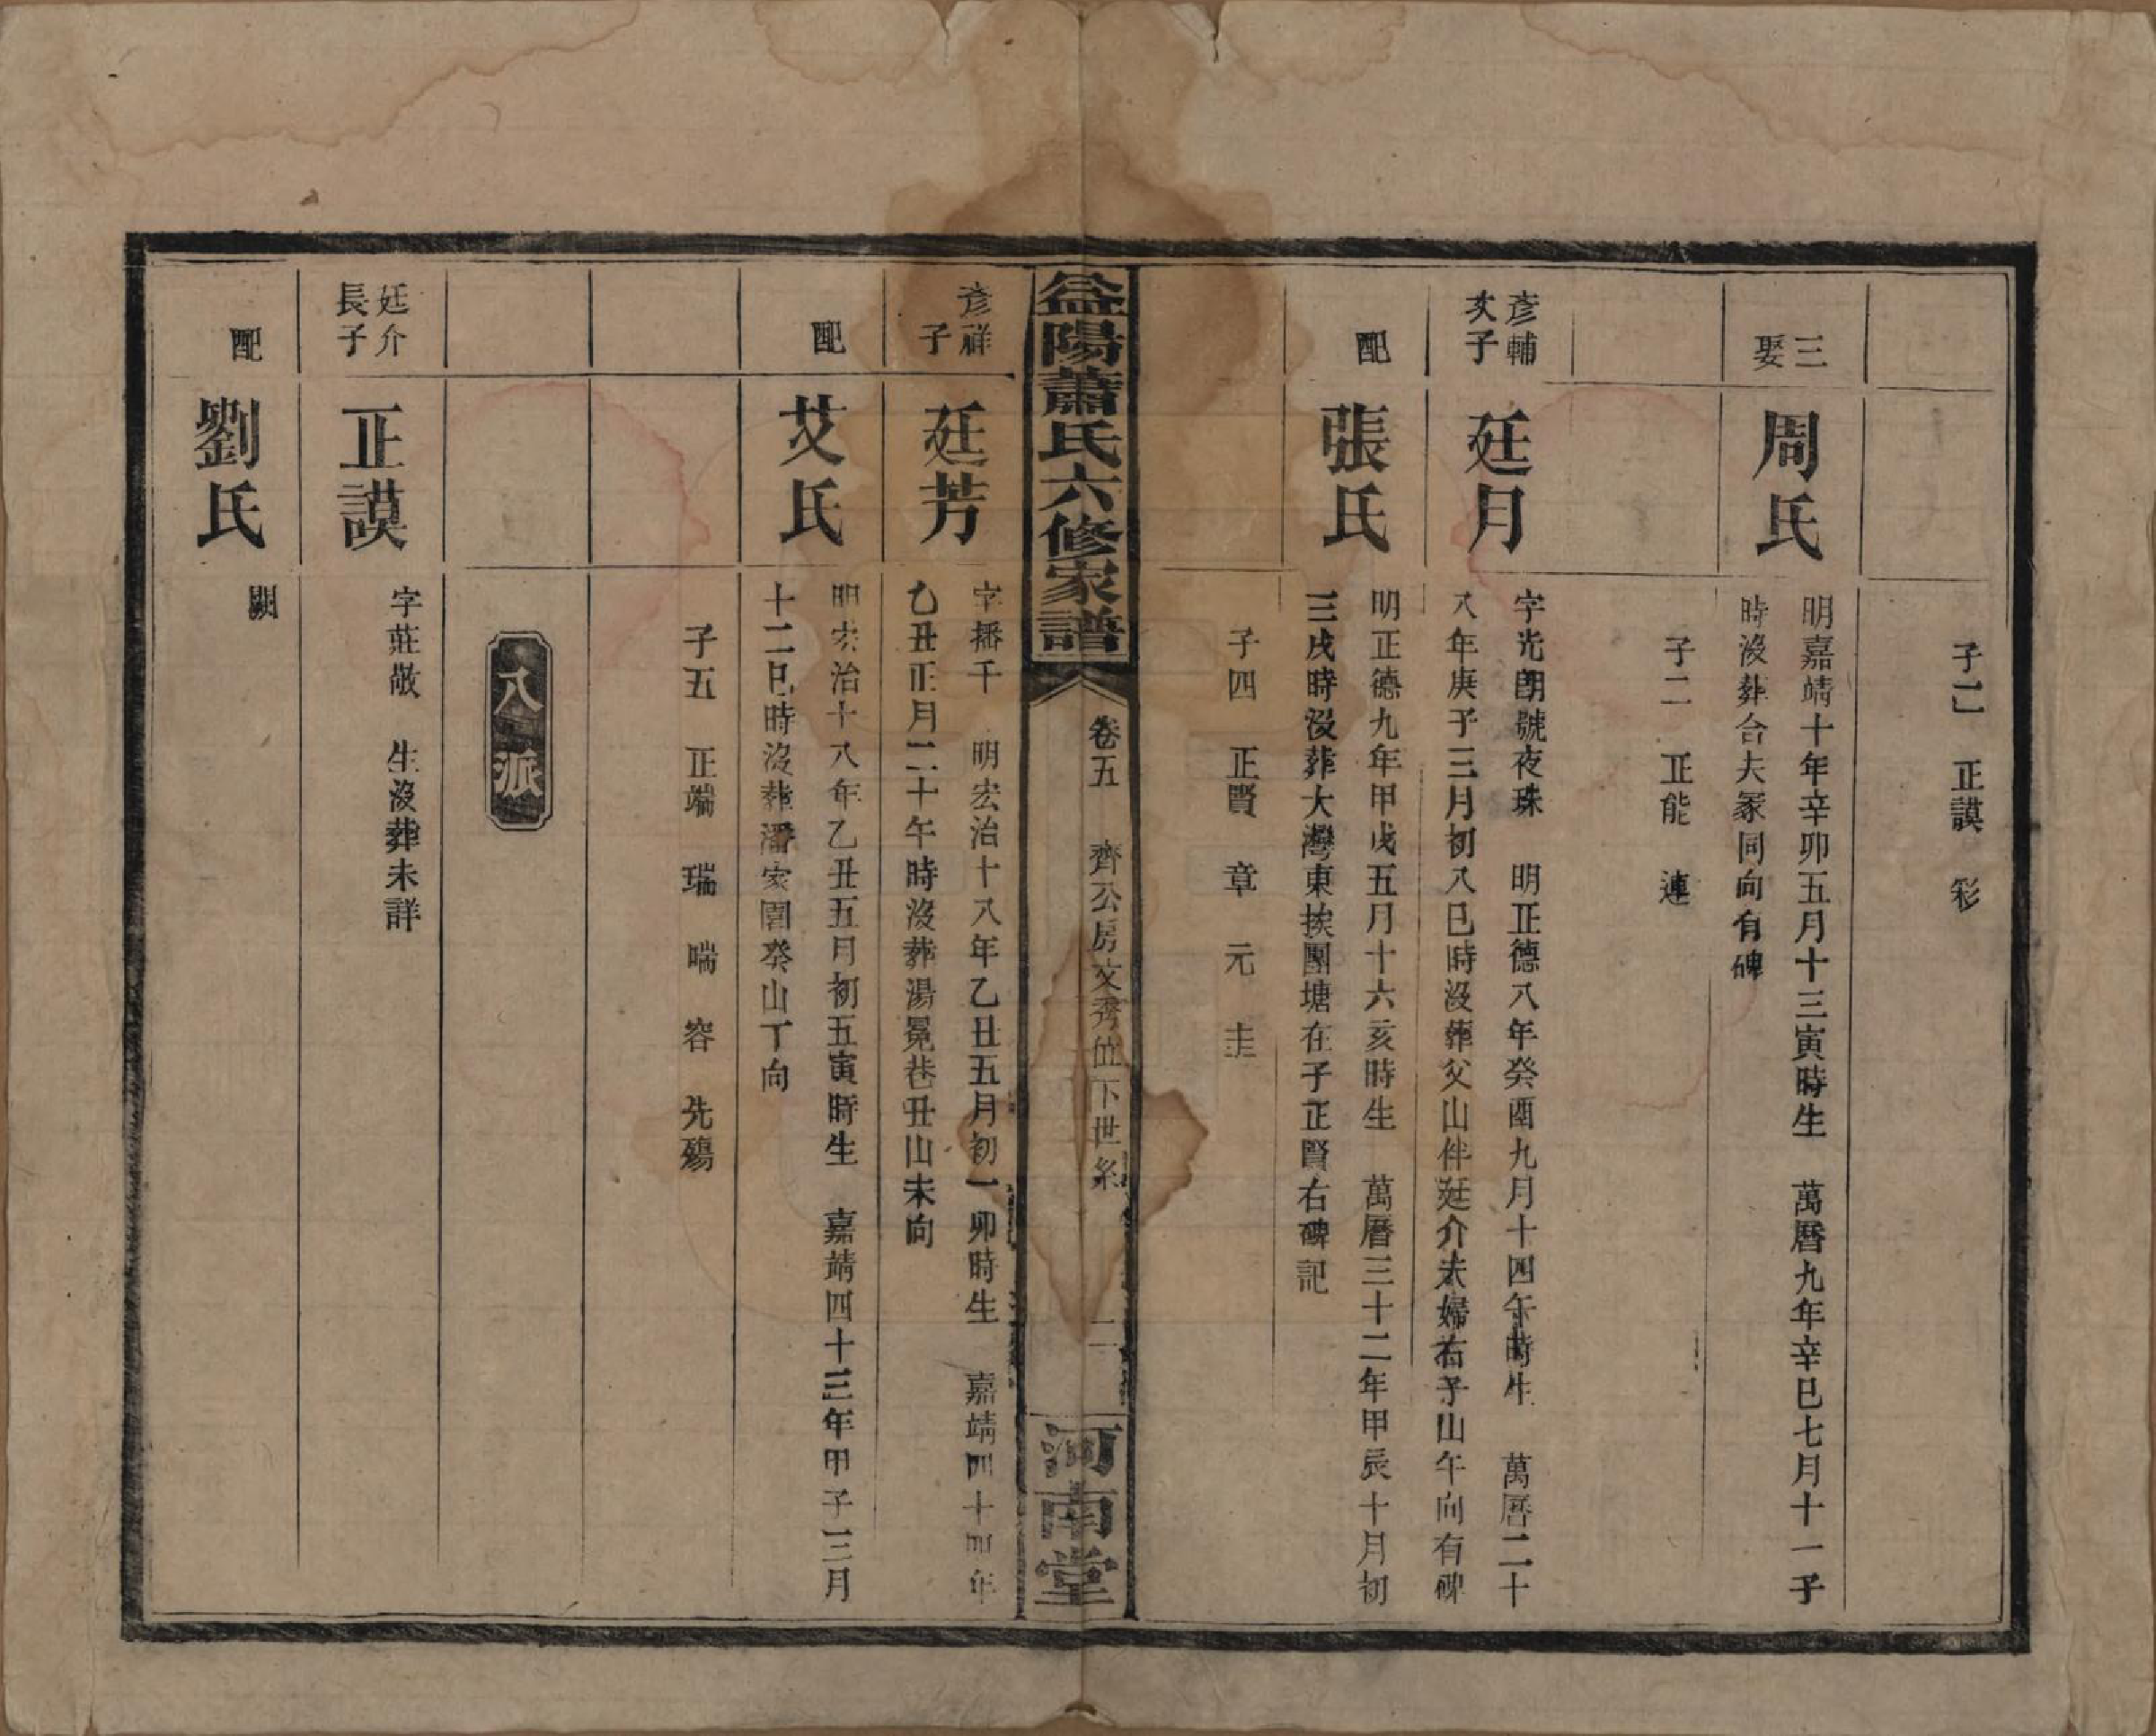 子二 正謨 彩
三娶
周氏
明嘉靖十年辛卯五月十三寅時生 萬曆九年辛巳七月十一子
時沒葬合夫冢同向有碑
子二 正能 連
彥輔次子
廷月
字光朗號夜珠 明正德八年癸酉九月十四午時生 萬曆二十
八年庚子三月初八巳時沒葬父山伴廷介夫婦右子山午向有碑
配
張氏
明正德九年甲戌五月十六亥時生 萬曆三十二年甲辰十月初
三戌時沒葬大灣東挨團塘在子正賢右碑記
子四 正賢 章 元 圭
益陽蕭氏六修家譜
卷五 齊公房文秀位下世系 二
河南堂
彥祥子
廷芳
字播千 明宏治十八年乙丑五月初一卯時生 嘉靖四十四年
乙丑正月二十午時沒葬湯冕巷丑山未向
配
艾氏
明宏治十八年乙丑五月初五寅時生 嘉靖四十三年甲子三月
十二巳時沒葬潘家園癸山丁向
子五 正端 瑞 喘 容 先殤
八派
廷介長子
正謨
字莊敬 生沒葬未詳
配
劉氏
闕